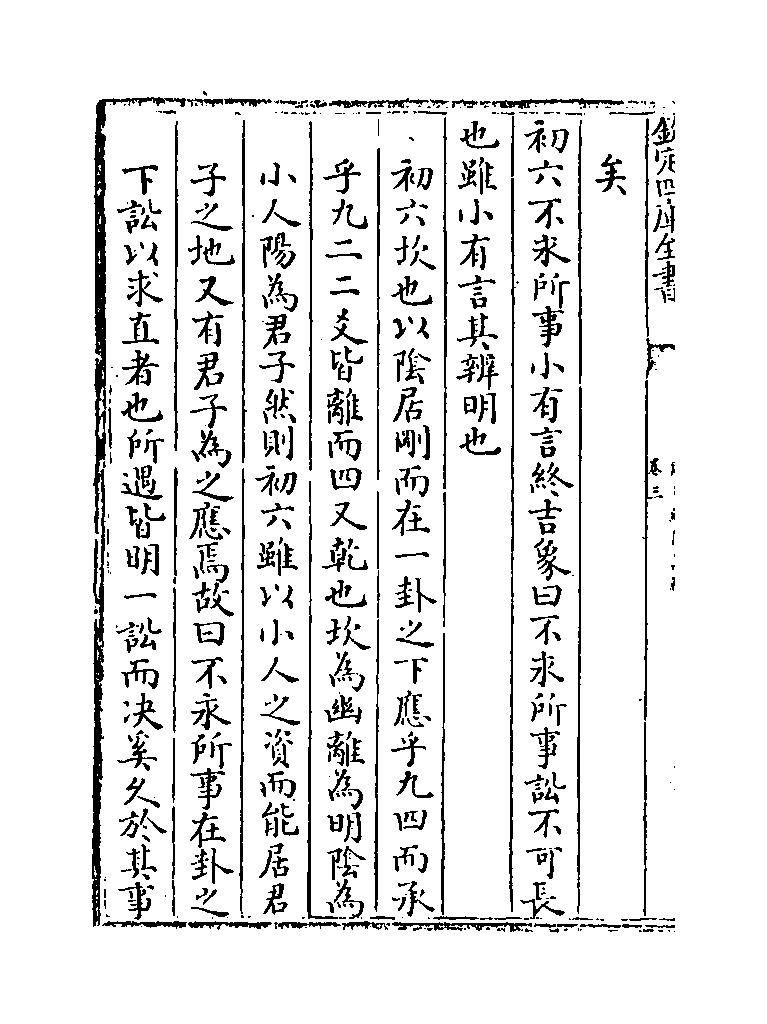 欽定四庫全書
卷三
矣
初六不永所事小有言終吉象曰不永所事訟不可長
也雖小有言其辨明也
初六坎也以陰居剛而在一卦之下應乎九四而承
乎九二二爻皆離而四又乾也坎為幽離為明陰為
小人陽為君子然則初六雖以小人之資而能居君
子之地又有君子為之應焉故曰不永所事在卦之
下訟以求直者也所遇皆明一訟而决奚久於其事